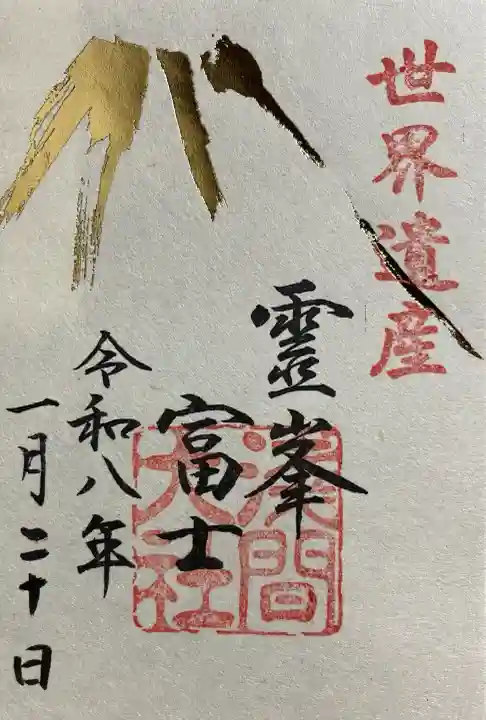 世界遺産
靈峯
富士
淺間
大社
令和八年
一月二十日